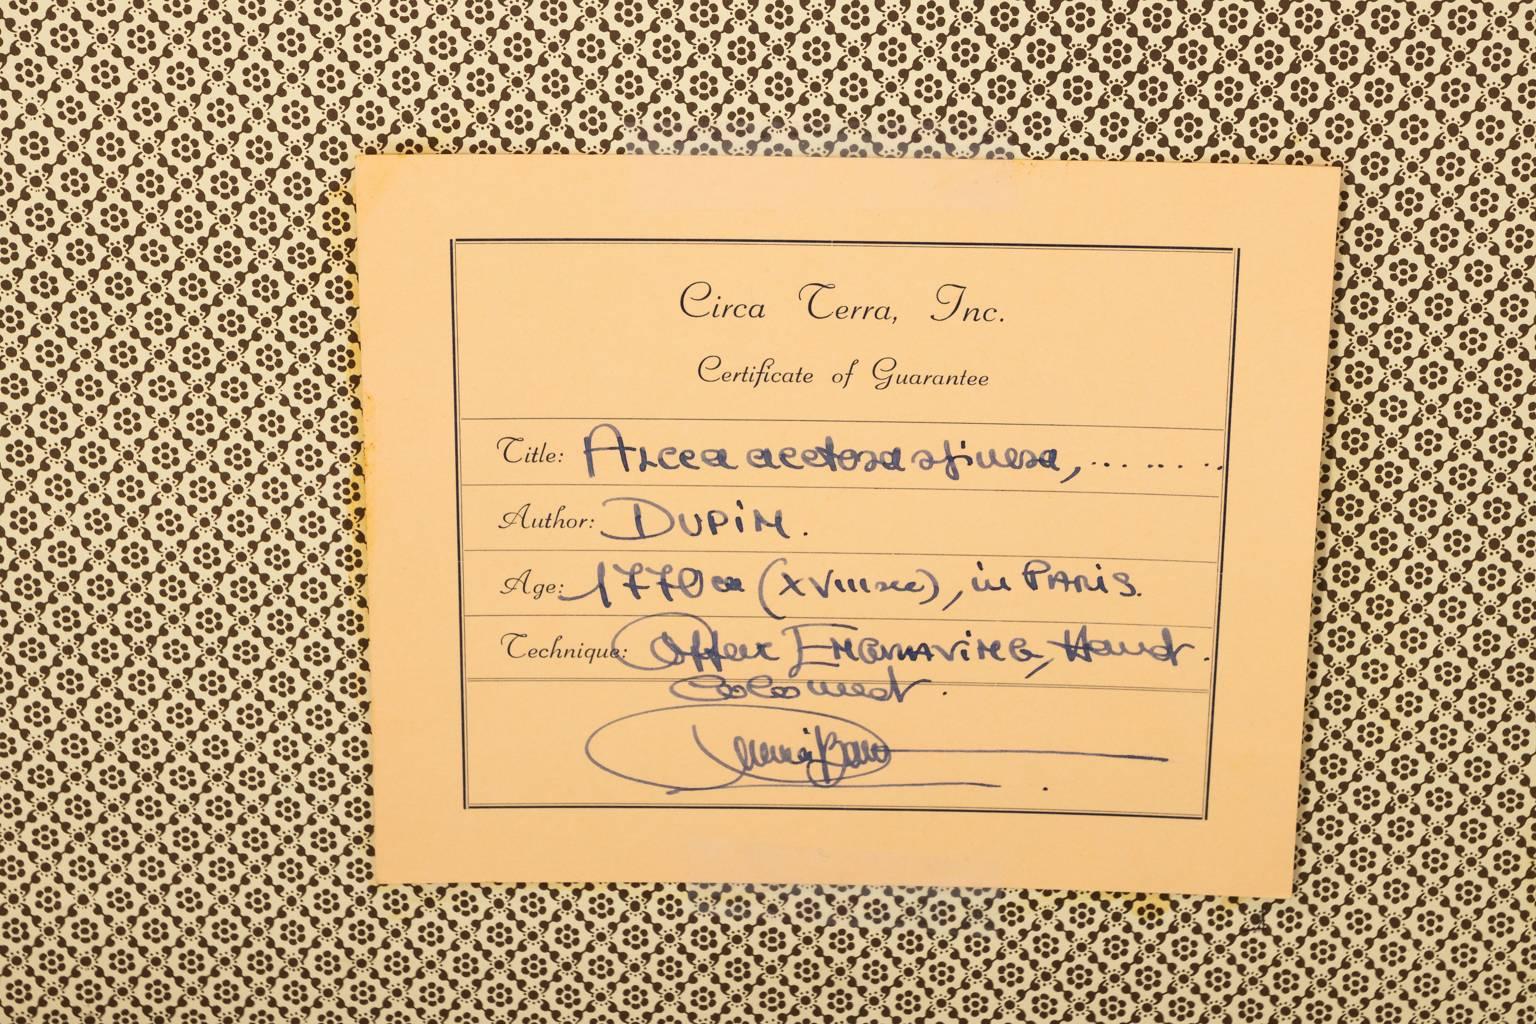 Circa Terra, Inc.
Certificate of Guarantee
Title: acetosa spinosa, ........
Author: DUPIN.
Age: 1770 ca (XVIII sec), in PARIS.
Technique: Copper ENGRAVING, Hand
Coloured.